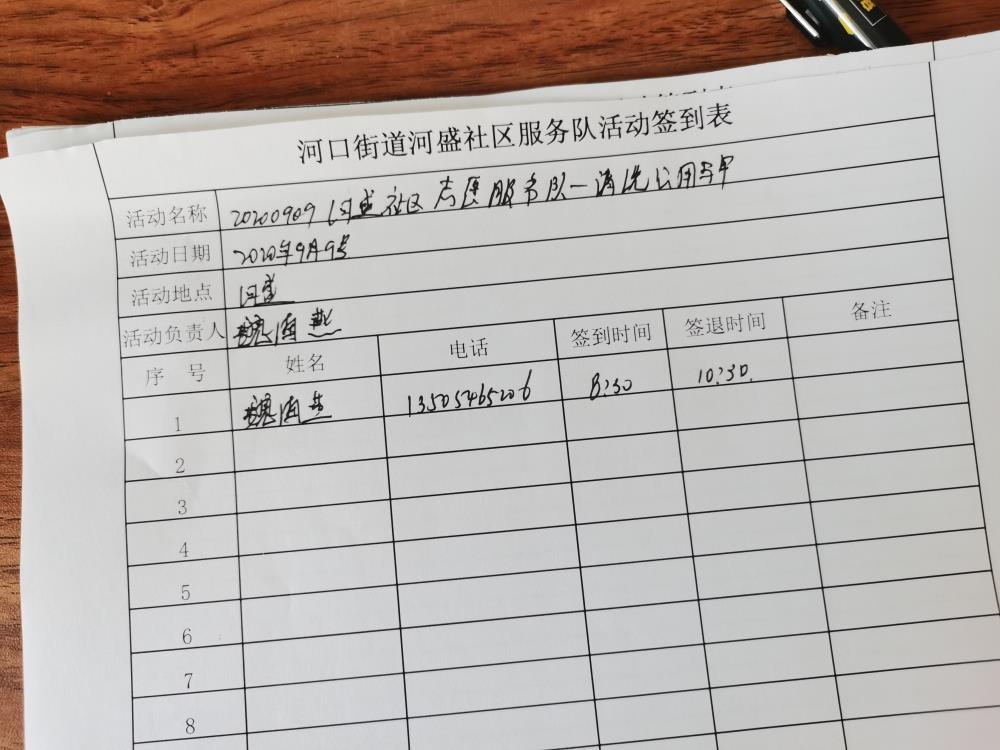 河口街道河盛社区服务队活动签到表
活动名称 20200909河盛社区志愿服务队一清洗公用
活动日期 2020年9月9号
活动地点 河盛
活动负责人 魏海燕
序号 姓名 电话 签到时间 签退时间 备注
1 魏海燕 13505465206 8:30 10:30.
2
3
4
5
6
7
8